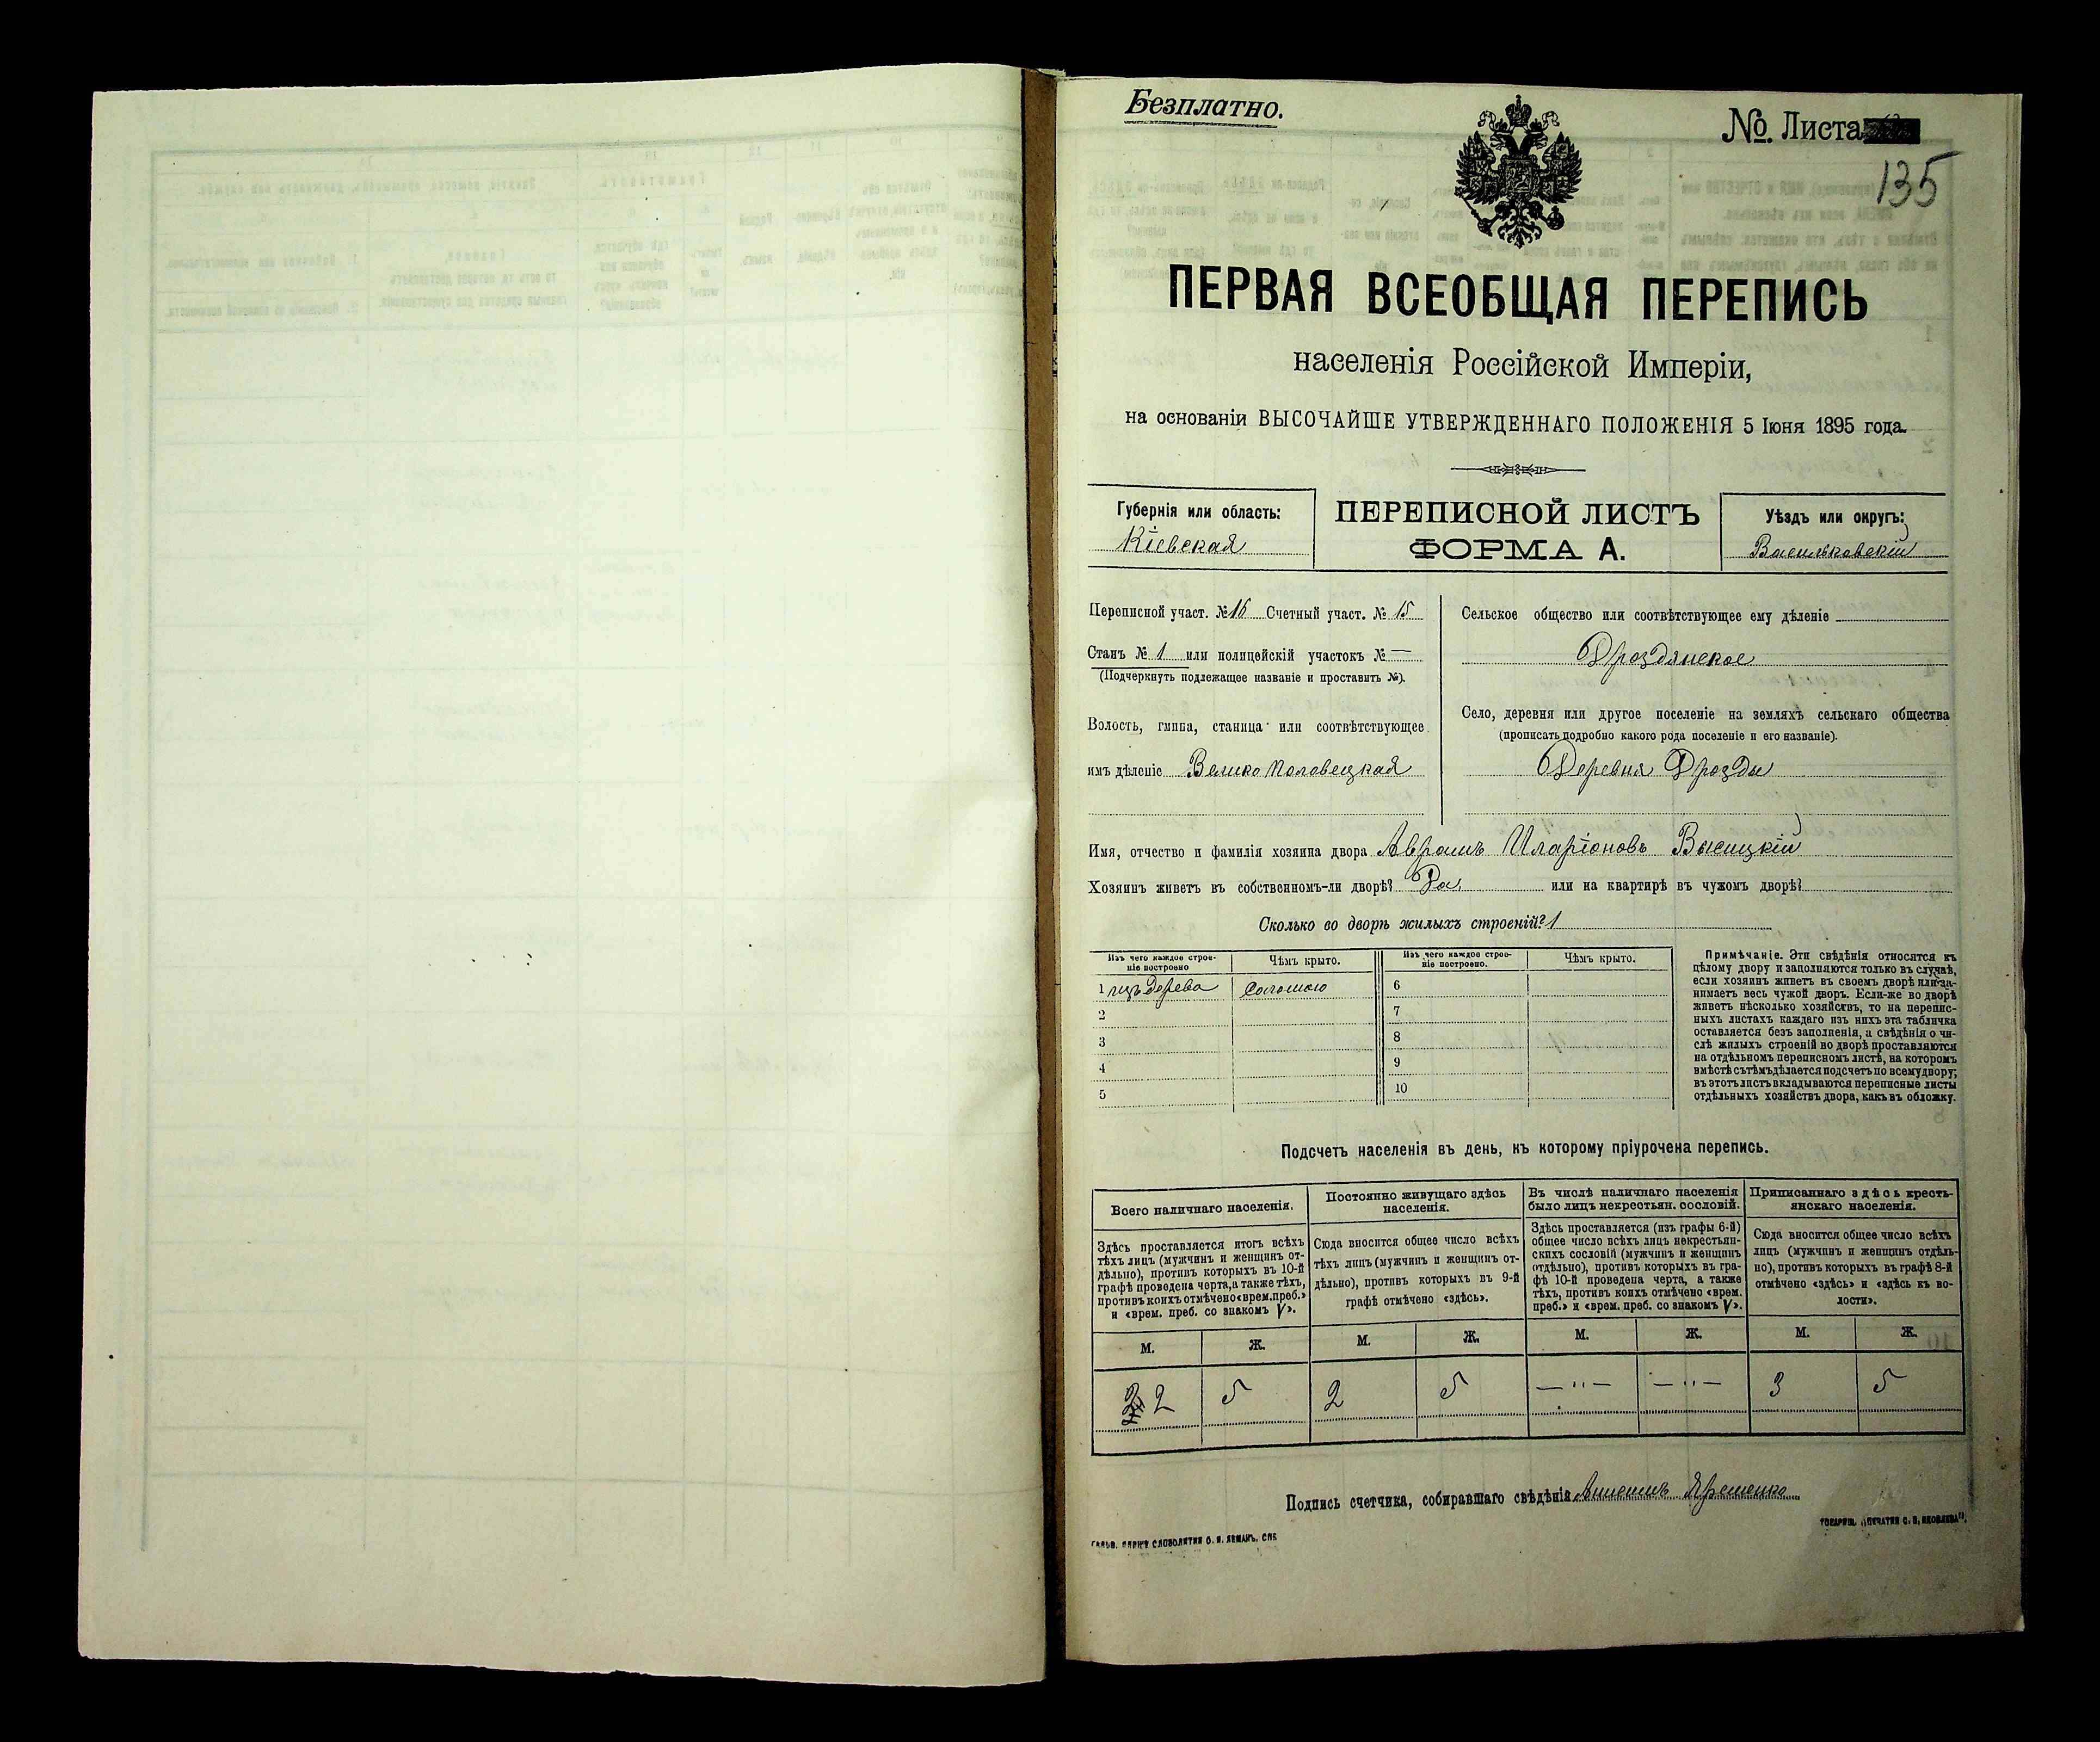 Безплатно.
№ Листа
135
ПЕРВАЯ ВСЕОБЩАЯ ПЕРЕПИСЬ
населенія Россійской Имперіи,
на основаніи ВЫСОЧАЙШЕ УТВЕРЖДЕННАГО ПОЛОЖЕНІЯ 5 Іюня 1895 года.
Губернія или область:
Кіевская
ПЕРЕПИСНОЙ ЛИСТЪ
ФОРМА А.
Уѣздъ или округъ:
Васильковскій
Переписной участ. № 16 Счетный участ. № 15
Станъ № 1 или полицейскій участокъ № —
(Подчеркнуть подлежащее названіе и проставить №).
Волость, гмина, станица или соотвѣтствующее
имъ дѣленіе Велико Половецкая
Сельское общество или соотвѣтствующее ему дѣленіе
Дроздянское
Село, деревня или другое поселеніе на земляхъ сельскаго общества
(прописать подробно какого рода поселеніе и его названіе).
Деревня Дрозды
Имя, отчество и фамилія хозяина двора Аврамъ Иларіоновъ Высицкій
Хозяинъ живетъ въ собственномъ-ли дворѣ? Да, или на квартирѣ въ чужомъ дворѣ?
Сколько во дворѣ жилыхъ строеній? 1
Изъ чего каждое строе-
ніе построено
Чѣмъ крыто.
Изъ чего каждое строе-
ніе построено.
Чѣмъ крыто.
1 изъ дерева Соломою 6
2 7
3 8
4 9
5 10
Примѣчаніе. Эти свѣдѣнія относятся къ
цѣлому двору и заполняются только въ случаѣ,
если хозяинъ живетъ въ своемъ дворѣ или за-
нимаетъ весь чужой дворъ. Если-же во дворѣ
живетъ нѣсколько хозяйствъ, то на перепис-
ныхъ листахъ каждаго изъ нихъ эта табличка
оставляется безъ заполненія, а свѣдѣнія о чи-
слѣ жилыхъ строеній во дворѣ проставляются
на отдѣльномъ переписномъ листѣ, на которомъ
вмѣстѣ съ тѣмъ дѣлается подсчетъ по всему двору;
въ этотъ листъ вкладываются переписные листы
отдѣльныхъ хозяйствъ двора, какъ въ обложку.
Подсчетъ населенія въ день, къ которому пріурочена перепись.
Всего наличнаго населенія.
Здѣсь проставляется итогъ всѣхъ
тѣхъ лицъ (мужчинъ и женщинъ от-
дѣльно), противъ которыхъ въ 10-й
графѣ проведена черта, а также тѣхъ,
противъ коихъ отмѣчено «врем. преб.»
и «врем. преб. со знакомъ V».
Постоянно живущаго здѣсь
населенія.
Сюда вносится общее число всѣхъ
тѣхъ лицъ (мужчинъ и женщинъ от-
дѣльно), противъ которыхъ въ 9-й
графѣ отмѣчено «здѣсь».
Въ числѣ наличнаго населенія
было лицъ некрестьян. сословій.
Здѣсь проставляется (изъ графы 6-й)
общее число всѣхъ лицъ некрестьян-
скихъ сословій (мужчинъ и женщинъ
отдѣльно), противъ которыхъ въ гра-
фѣ 10-й проведена черта, а также
тѣхъ, противъ коихъ отмѣчено «врем.
преб.» и «врем. преб. со знакомъ V».
Приписаннаго здѣсь кресть-
янскаго населенія.
Сюда вносится общее число всѣхъ
лицъ (мужчинъ и женщинъ отдѣль-
но), противъ которыхъ въ графѣ 8-й
отмѣчено «здѣсь» и «здѣсь къ во-
лости».
М. Ж. М. Ж. М. Ж. М. Ж.
2 5 2 5 — " — — " — 3 5
Подпись счетчика, собиравшаго свѣдѣнія
СЛОВОЛИТНЯ О. И. ЛЕМАНЪ. СПБ
ТОВАРИЩ. „ПЕЧАТНЯ С. П. ЯКОВЛЕВА".